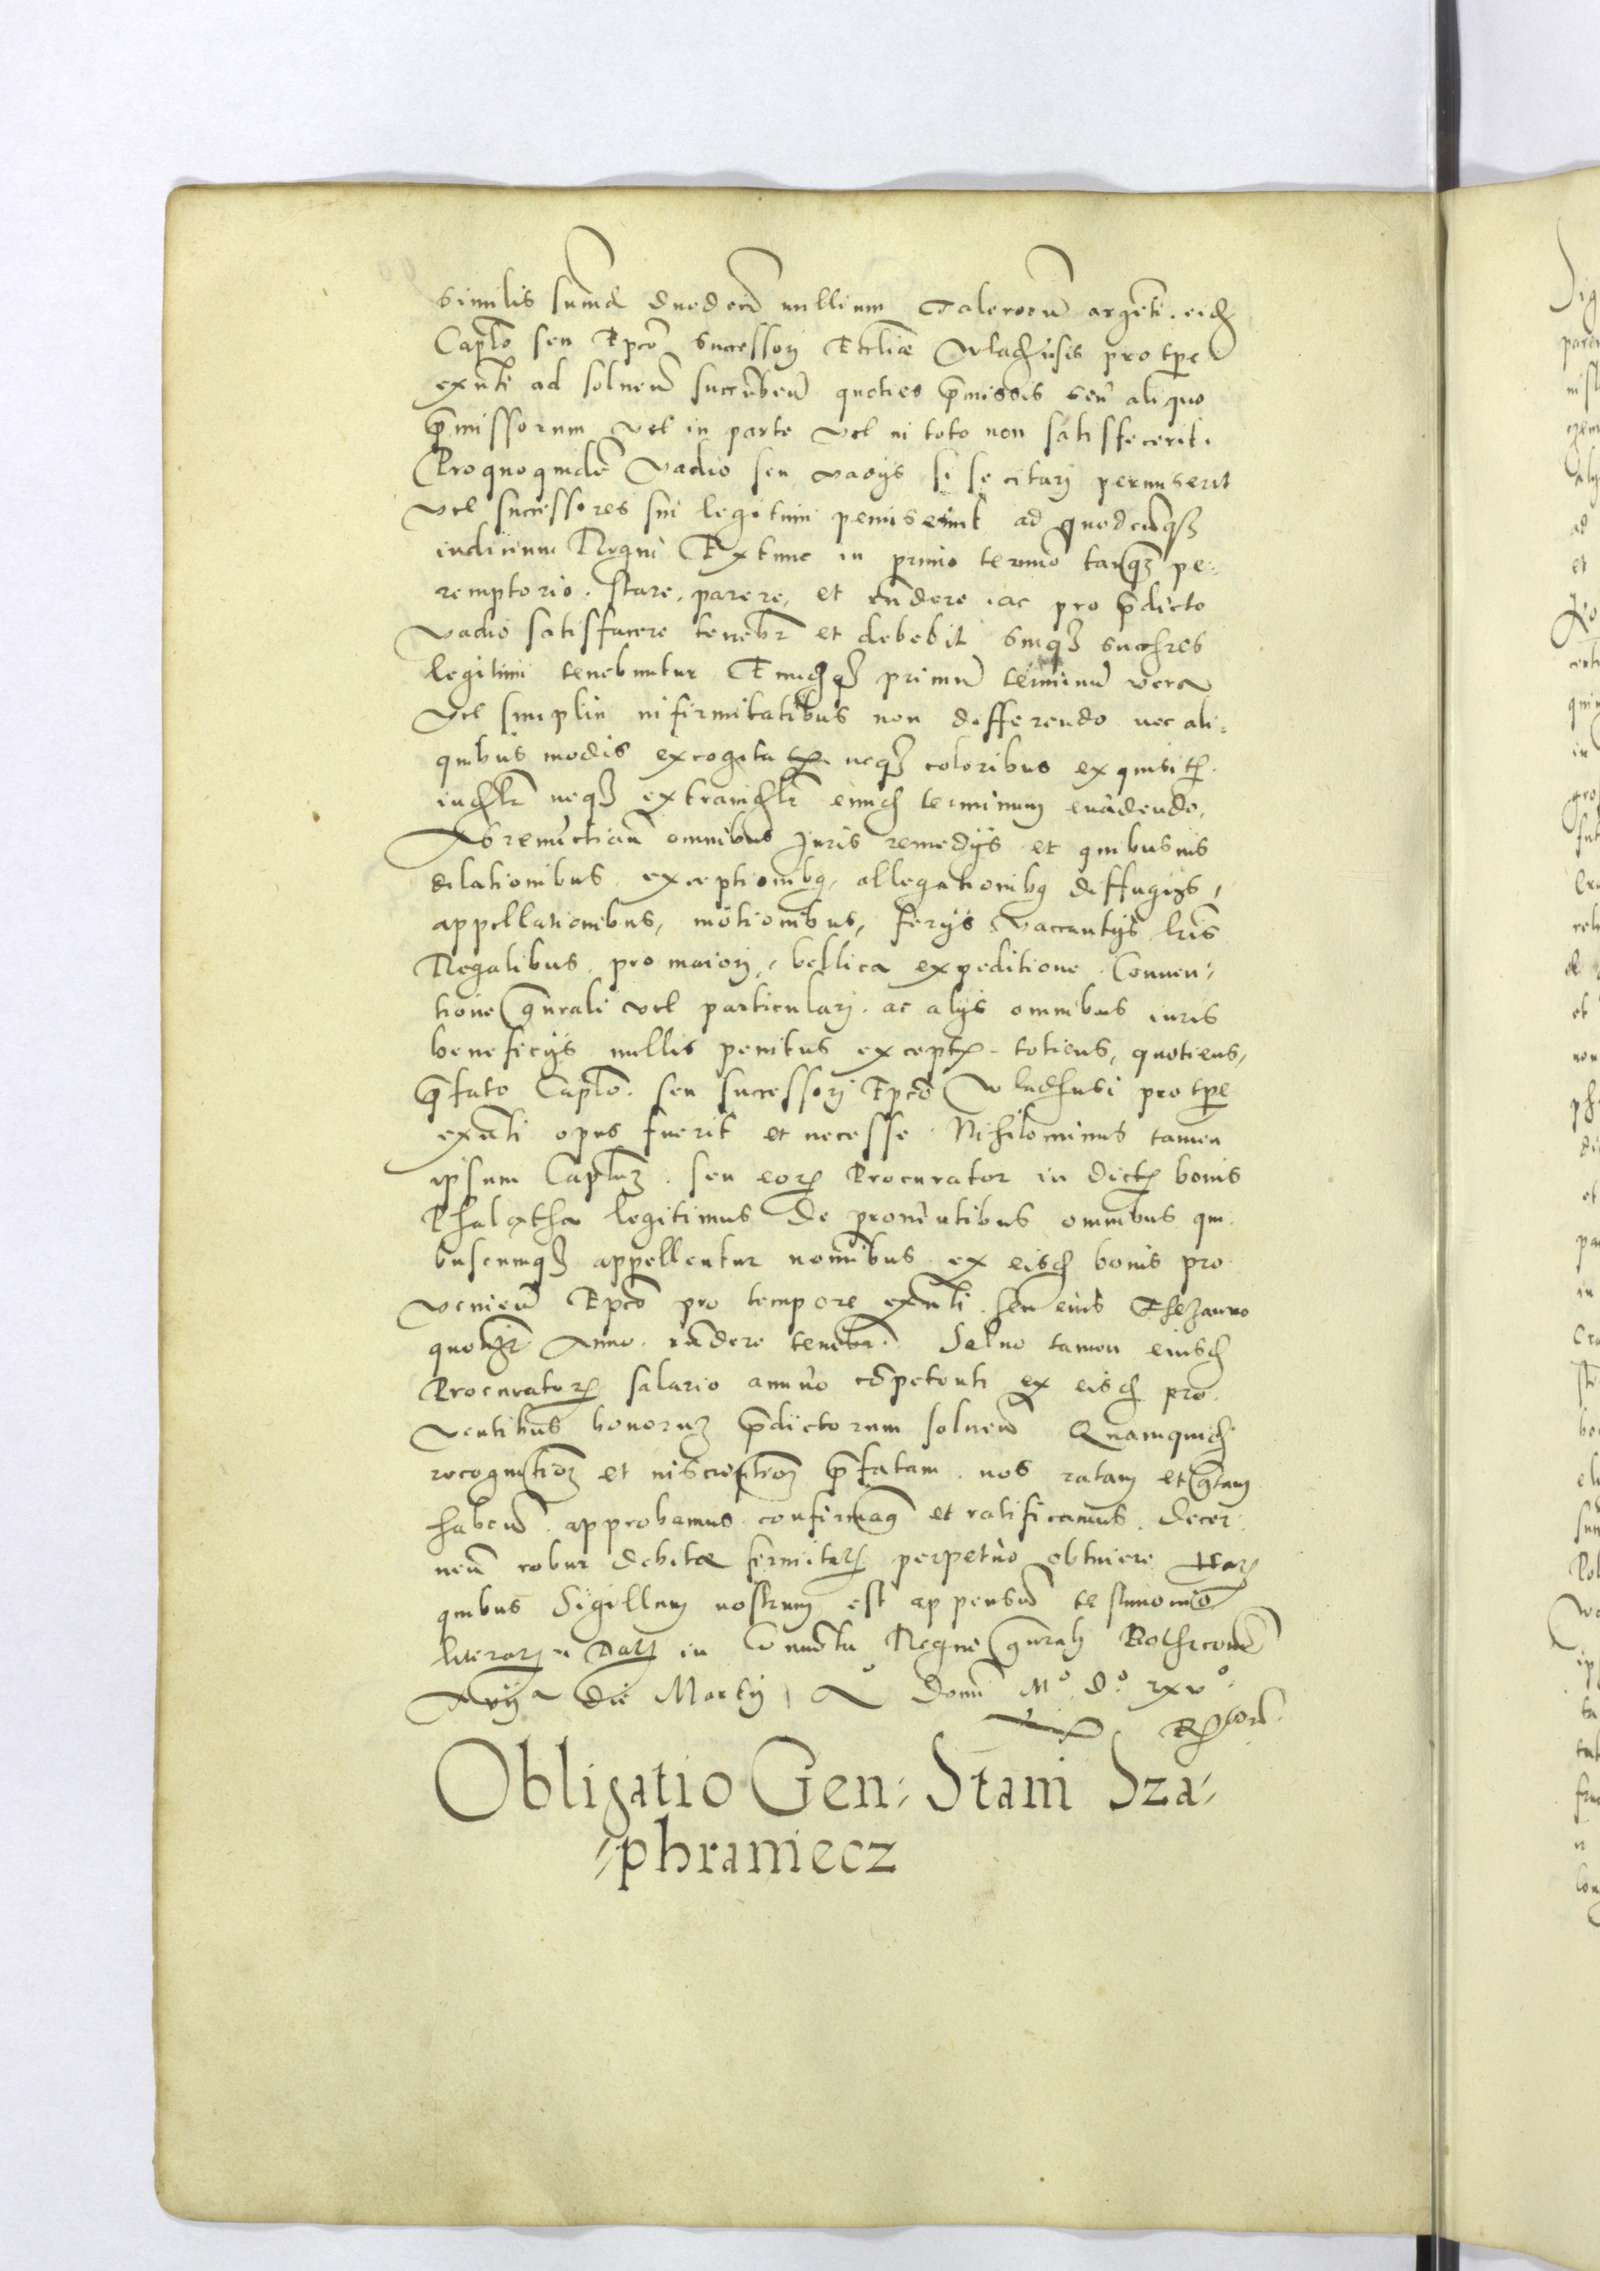 similis summa duodecim millium Talerorum argenti. eidem
Caplo seu Epco Successori Ecclie Wladislavien pro tpe
exnti ad solvend succubend quoties premissis seu aliquo
premissorum vel in parte vel in toto non satisfecerit.
Pro quo quidem vadio seu vadijs si se citari permiserit
vel successores sui legitimi permiserint ad quodcunqz
iudicium Regni Ex tunc in primo termino tanqz pe-
remptorio. stare, parere, et rndere. ac pro predicto
vadio satisfacere tenebr et debebit suiqz succres
legitimi tenebuntur Eundemqz primum terminum vera
vel simplici infirmitatibus non differendo nec ali-
quibus modis excogitatis neqz coloribus exquisitis.
iudlr neqz extraiudlr eundem terminum evadendo.
Abrenunctiam omnibus Juris remedijs et quibusuis
dilationibus. exceptionibq, allegationibq diffugijs,
appellationibus, motionibus, ferijs vaccantijs lris
Regalibus. pro maiori, bellica expeditione. Conven-
tione gnrali vel particulari. ac alijs omnibus iuris
beneficijs nullis penitus exceptis. totiens, quotiens,
prefato Caplo. seu successori Epco Wladislavi pro tpe
exnti opus fuerit et necesse. Nihilominus tamen
ipsum Caplum. seu eorum Procurator in dictis bonis
legitimus de proventibus omnibus qui-
buscunqz appellentur nominibus. ex eisdem bonis pro
venien Epco pro tempore exnti. seu eius Thezauro
quolibet Anno. rndere tenebr. Salvo tamen eiusdem
Procuratoris salario annuo competenti ex eisdem pro
ventibus bonorum predictorum solvend Quamquidem
recognitionem et inscriptionem prefatam. nos ratam et gratam
habend. approbamus confirmamq et ratificamus. decer
nen robur debitae firmitatis perpetuo obtinere Harum
quibus Sigillum nostrum est appensum testimonio
literarum. Datum in Conventu Regni gnrali Piothrcovien
xvij die Martij, Ao Domi Mo. Do. xxvo.
Obligatio Gen- Stani Sza-
-phraniecz